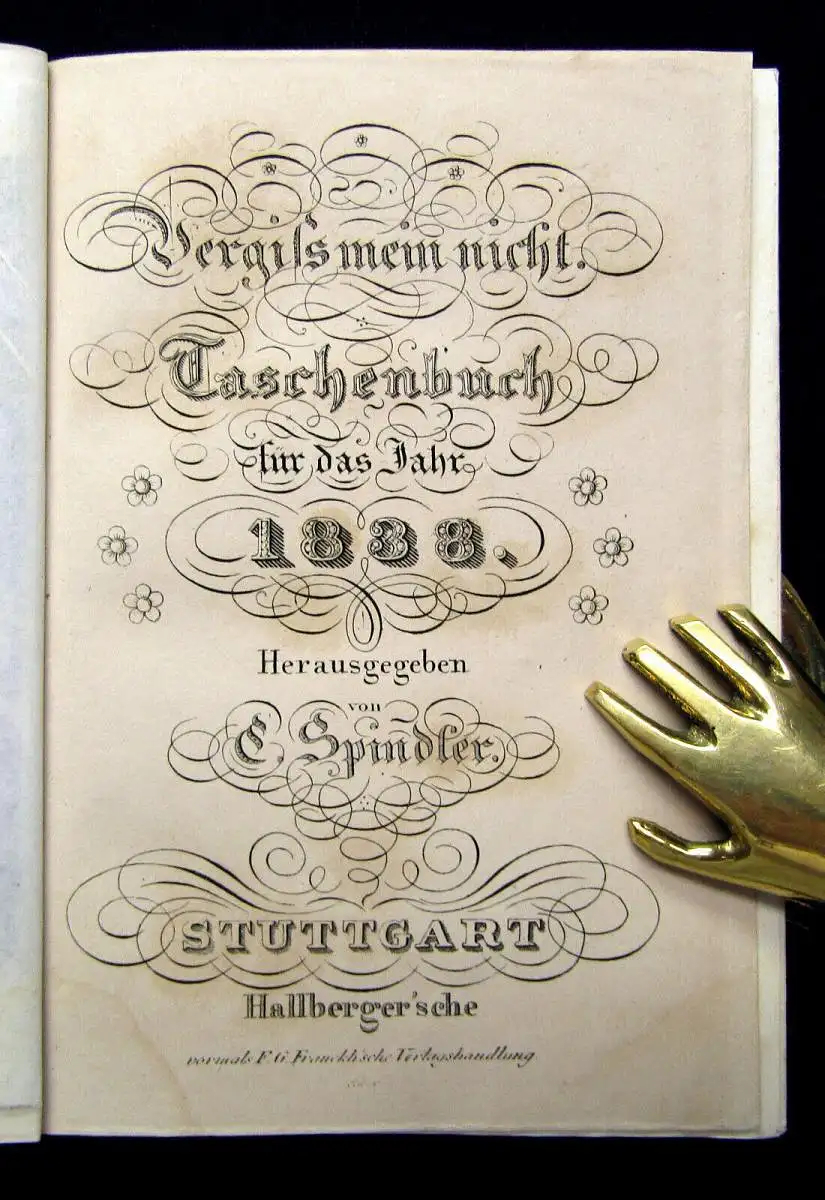 Vergiſs mein nicht.
Taschenbuch
für das Jahr
1838.
Herausgegeben
von
C. Spindler.
STUTTGART
Hallberger'sche
vormals F. G. Franckh'sche Verlagshandlung